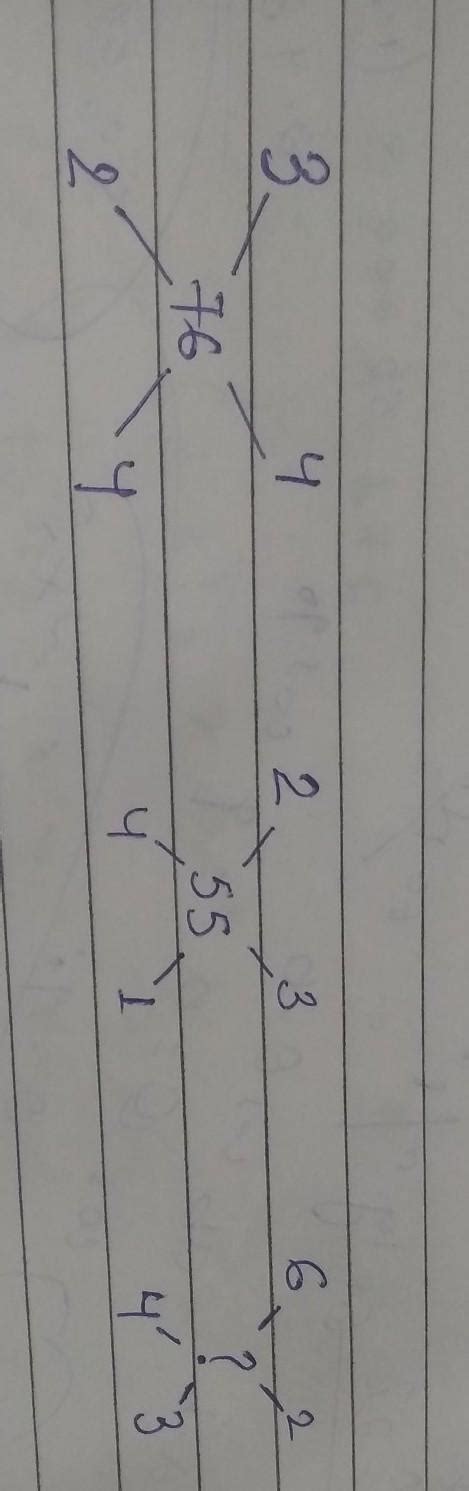 3 4 2 3 6 2
76 55 ?
2 4 4 1 4 3